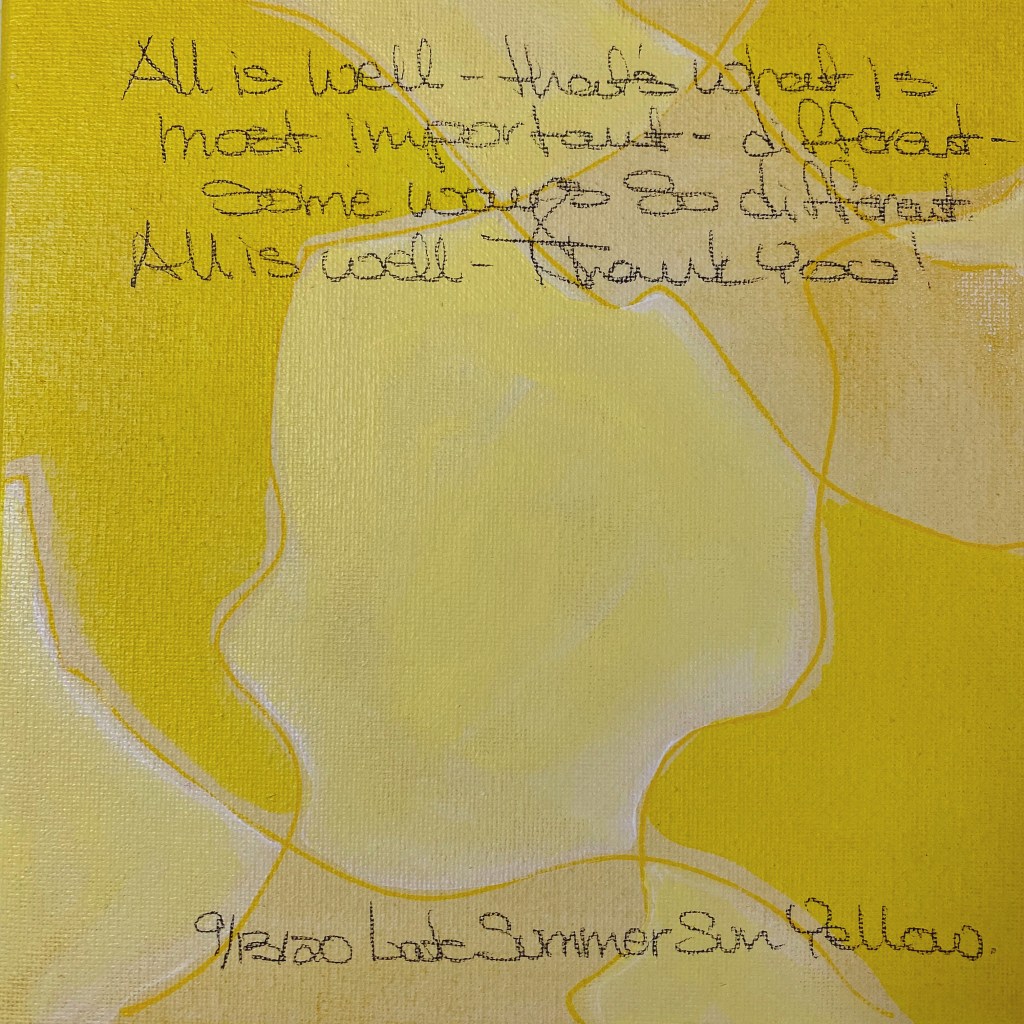 All is well - that's what is
most important - different -
some ways so different.
All is well - Thank You!
9/13/20 Late Summer Sun Yellow.